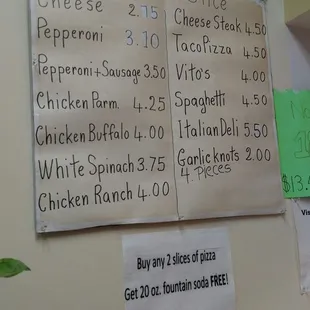 Cheese 2.75
Pepperoni 3.10
Pepperoni+Sausage 3.50
Chicken Parm. 4.25
Chicken Buffalo 4.00
White Spinach 3.75
Chicken Ranch 4.00
Cheese Steak 4.50
Taco Pizza 4.50
Vito's 4.00
Spaghetti 4.50
Italian Deli 5.50
Garlic knots 2.00
4 pieces
Buy any 2 slices of pizza
Get 20 oz. fountain soda FREE!